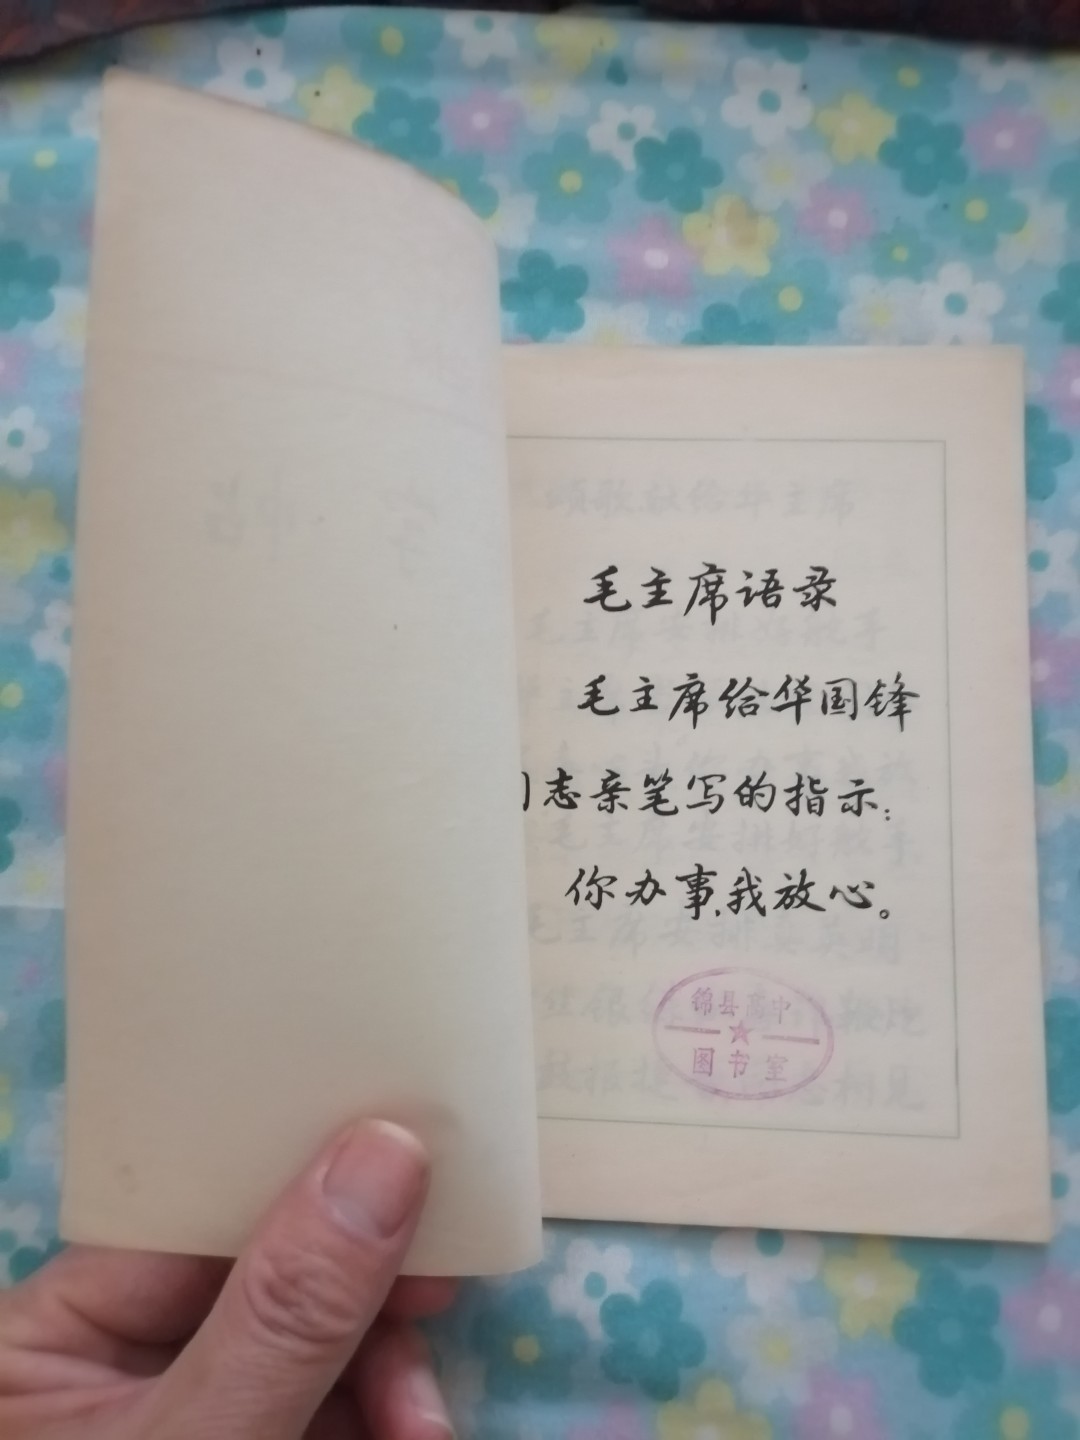 毛主席语录
毛主席给华国锋
志亲笔写的指示：
你办事，我放心。
锦县高中
图书室
颂歌献给华主席